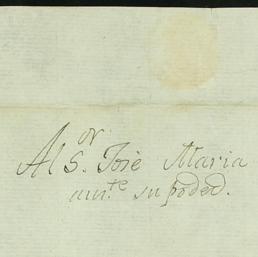 Al S.or Jose Maria
aun.te su poded.